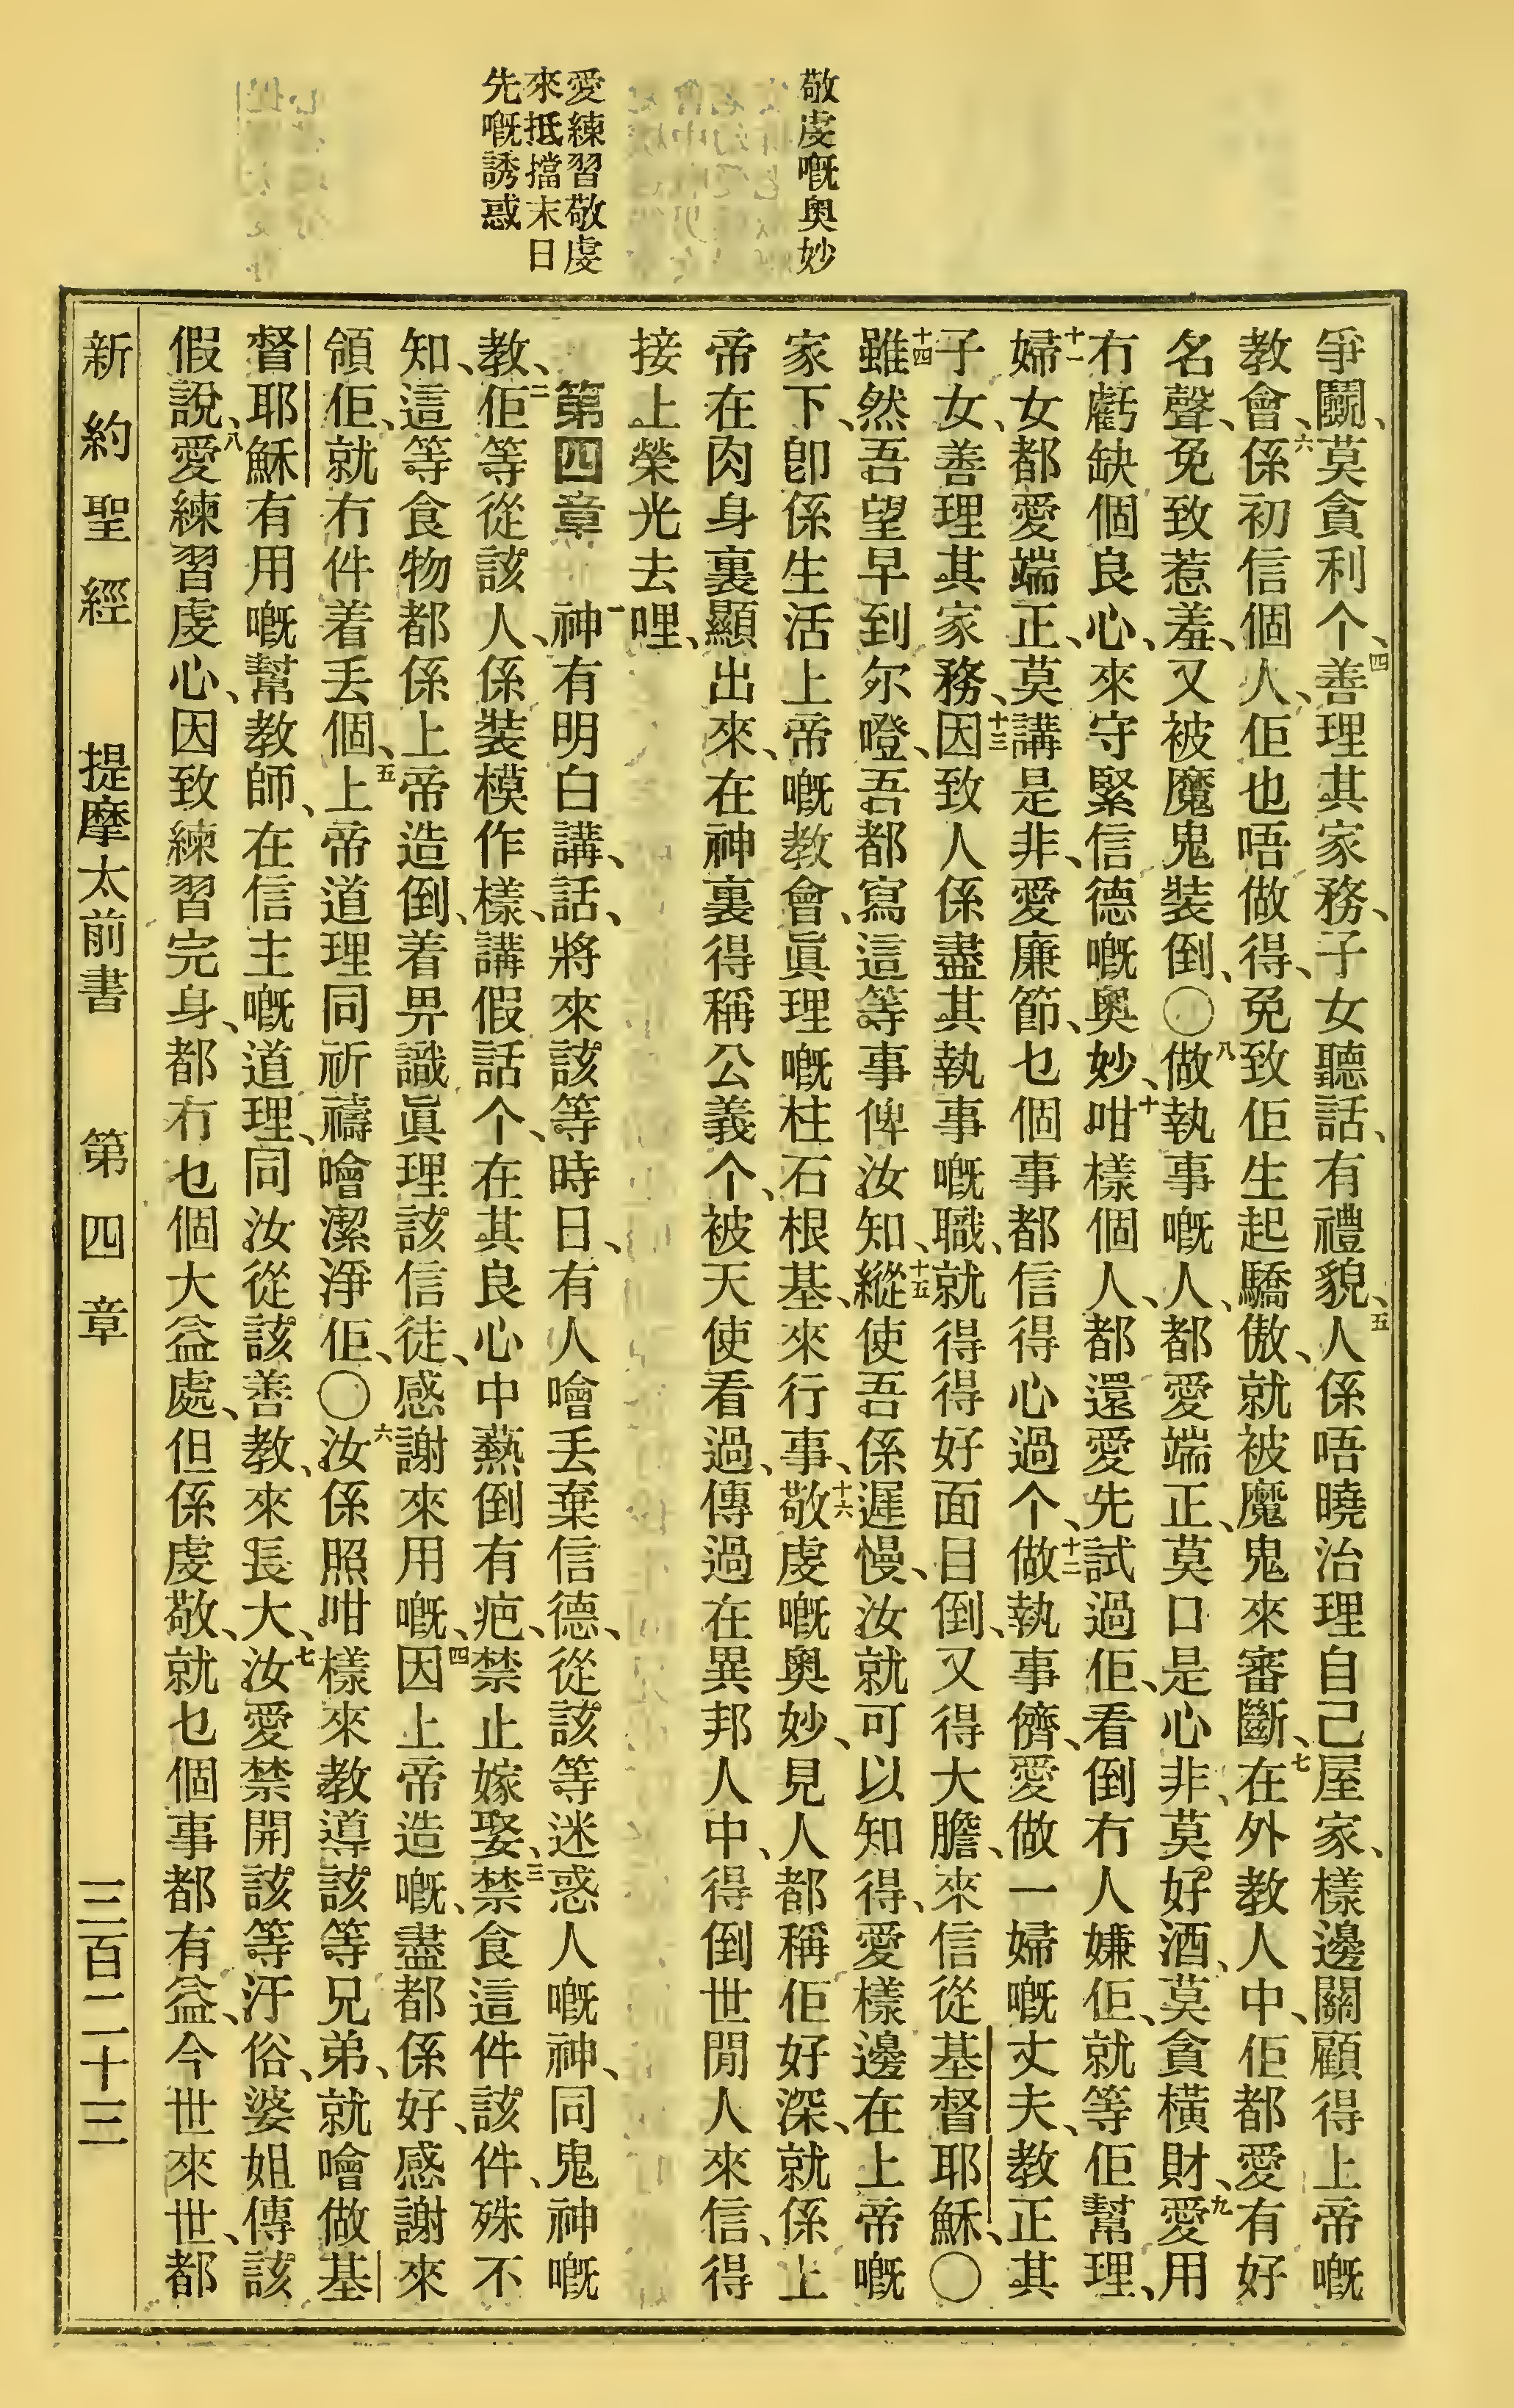 敬虔嘅奧妙
愛練習敬虔
來抵擋末日
先嘅誘惑
爭鬭、莫貪利个、四善理其家務、子女聽話、有禮貌、五人係唔曉治理自己屋家、樣邊關顧得上帝嘅
教會、六係初信個人、佢也唔做得、免致佢生起驕傲、就被魔鬼來審斷、七在外教人中、佢都愛有好
名聲、免致惹羞、又被魔鬼裝倒、〇八做執事嘅人、都愛端正、莫口是心非、莫好酒、莫貪橫財、九愛用
冇虧缺個良心、來守緊信德嘅奧妙、十咁樣個人、都還愛先試過佢、看倒冇人嫌佢、就等佢幫理、
十一婦女都愛端正、莫講是非、愛廉節、乜個事都信得心過个、十二做執事儕、愛做一婦嘅丈夫、教正其
子女、善理其家務、十三因致人係盡其執事嘅職、就得得好面目倒、又得大膽、來信從基督耶穌、〇
十四雖然吾望早到尔噔、吾都寫這等事俾汝知、十五縱使吾係遲慢、汝就可以知得、愛樣邊在上帝嘅
家下、卽係生活上帝嘅教會、眞理嘅柱石根基、來行事、十六敬虔嘅奧妙、見人都稱佢好深、就係上
帝在肉身裏顯出來、在神裏得稱公義个、被天使看過、傳過在異邦人中、得倒世間人來信、得
接上榮光去哩、
第四章 一神有明白講、話、將來該等時日、有人噲丟棄信德、從該等迷惑人嘅神、同鬼神嘅
教、二佢等從該人、係裝模作樣、講假話个、在其良心中爇倒有疤、禁止嫁娶、三禁食這件該件、殊不
知、這等食物都係上帝造倒、着畀識眞理該信徒、感謝來用嘅、四因上帝造嘅、盡都係好、感謝來
領佢、就冇件着丟個、五上帝道理同祈禱噲潔淨佢、〇六汝係照咁樣來教導該等兄弟、就噲做基
督耶穌有用嘅幫教師、在信主嘅道理、同汝從該善教、來長大、七汝愛禁開該等汙俗、婆姐傳該
假說、八愛練習虔心、因致練習完身、都冇乜個大益處、但係虔敬、就乜個事都有益、今世來世、都
新約聖經 提摩太前書 第四章 三百二十三